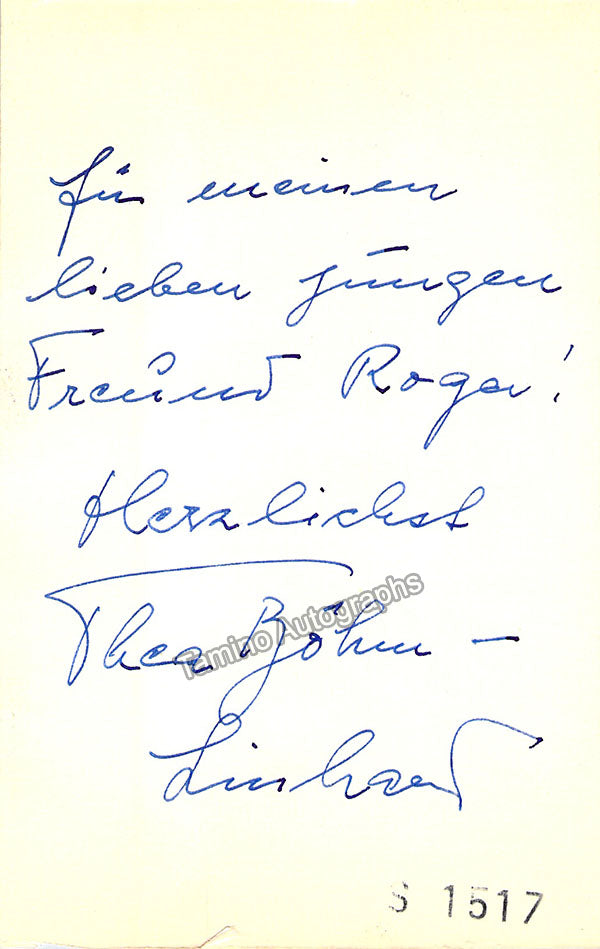 für meinen
lieben jungen
Freund Roger!
Herzlichst
Thea Böhm -
Linhard
Tamino Autographs
S 1517